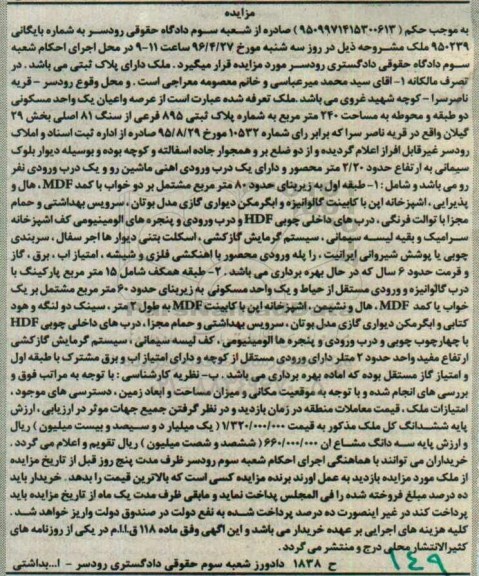 مزایده
به موجب حکم ( ۹۵۰۹۹۷۱۴۱۵۳۰۰۶۱۳ ) صادره از شعبه سوم دادگاه حقوقی رودسر به شماره بایگانی
۹۵۰۲۳۹ ملک مشروحه ذیل در روز سه شنبه مورخ ۹۶/۴/۲۷ ساعت ۱۱-۹ در محل اجرای احکام شعبه
سوم دادگاه حقوقی دادگستری رودسر مورد مزایده قرار میگیرد . ملک دارای پلاک ثبتی می باشد . در
تصرف مالکانه ۱- آقای سید محمد میرعباسی و خانم معصومه معراجی است . و محل وقوع رودسر - قریه
ناصرسرا - کوچه شهید غروی می باشد .ملک تعرفه شده عبارت است از عرصه واعیان یک واحد مسکونی
دو طبقه و محوطه به مساحت ۲۴۰ متر مربع به شماره پلاک ثبتی ۸۹۵ فرعی از سنگ ۸۱ اصلی بخش ۲۹
گیلان واقع در قریه ناصر سرا که برابر رای شماره ۱۰۵۳۲ مورخ ۹۵/۸/۲۹ صادره از اداره ثبت اسناد و املاک
رودسر غیرقابل افراز اعلام گردیده و از دو ضلع بر و همجوار جاده اسفالته و کوچه بوده و بوسیله دیوار بلوک
سیمانی به ارتفاع حدود ۲/۲۰ متر محصور و دارای یک درب ورودی اهنی ماشین رو و یک درب ورودی نفر
رو می باشد و شامل : ۱- طبقه اول به زیربنای حدود ۸۰ متر مربع مشتمل بر دو خواب با کمد MDF ، هال و
پذیرایی ، اشپزخانه اپن با کابینت گالوانیزه و ابگرمکن دیواری گازی مدل بوتان ، سرویس بهداشتی و حمام
مجزا با توالت فرنگی ، درب های داخلی چوبی HDF و درب ورودی و پنجره های الومینیومی کف اشپزخانه
سرامیک و بقیه لیسه سیمانی ، سیستم گرمایش گازکشی ، اسکلت بتنی دیوار ها اجر سفال ، سربندی
چوبی با پوشش شیروانی ایرانیت ، را پله ورودی محصور با اهنکشی فلزی و شیشه ، امتیاز اب ، برق ، گاز
و قرمت حدود ۶ سال که در حال بهره برداری می باشد . ۲- طبقه همکف شامل ۱۵ متر مربع پارکینگ با
درب گالوانیزه و ورودی مستقل از حیاط و یک واحد مسکونی به زیربنای حدود ۶۰ متر مربع مشتمل بر یک
خواب با کمد MDF ، هال و نشیمن ، اشپزخانه اپن با کابینت MDF به طول ۳ متر ، سینک دو لنگه و هود
کتابی و ابگرمکن دیواری گازی مدل بوتان ، سرویس بهداشتی و حمام مجزا ، درب های داخلی چوبی HDF
با چهارچوب چوبی و درب ورودی و پنجره ها الومینیومی ، کف لیسه سیمانی ، سیستم گرمایش گازکشی
ارتفاع مفید واحد حدود ۲ متلر دارای ورودی مستقل از کوچه و دارای امتیاز اب و برق مشترک با طبقه اول
و امتیاز گاز مستقل بوده که اماده بهره برداری می باشد . ب- نظریه کارشناسی : با توجه به مراتب فوق و
بررسی های انجام شده و با توجه به موقعیت مکانی و میزان مساحت و ابعاد زمین ، دسترسی های موجود ،
امتیازات ملک ، قیمت معاملات منطقه در زمان بازدید و در نظر گرفتن جمیع جهات موثر در ارزیابی ، ارزش
پایه ششدانگ کل ملک مذکور به قیمت ۱/۳۲۰/۰۰۰/۰۰۰ ( یک میلیار د و سیصد و بیست میلیون ) ریال
و ارزش پایه سه دانگ مشاع ان ۶۶۰/۰۰۰/۰۰۰ ( ششصد و شصت میلیون ) ریال تقویم و اعلام می گردد .
خریداران می توانند با هماهنگی اجرای احکام شعبه سوم رودسر ظرف مدت پنج روز قبل از تاریخ مزایده
از ملک مورد مزایده بازدید به عمل اورند برنده مزایده کسی است که بالاترین قیمت را بدهد. خریدار باید
ده درصد مبلغ فروخته شده را فی المجلس پداخت نماید و مابقی ظرف مدت یک ماه از تاریخ مزایده باید
پرداخت کند در غیر اینصورت ده درصد پرداخت شده به نفع دولت در صندوق دولت واریز خواهد شد .
کلیه هزینه های اجرایی بر عهده خریدار می باشد و این اگهی وفق ماده ۱۱۸ ق.ا.ا.م در یکی از روزنامه های
کثیرالانتشار محلی درج و منتشر می گردد .
ح ۱۸۳۸ دادورز شعبه سوم حقوقی دادگستری رودسر - ا...بداشتی
۱۴۹